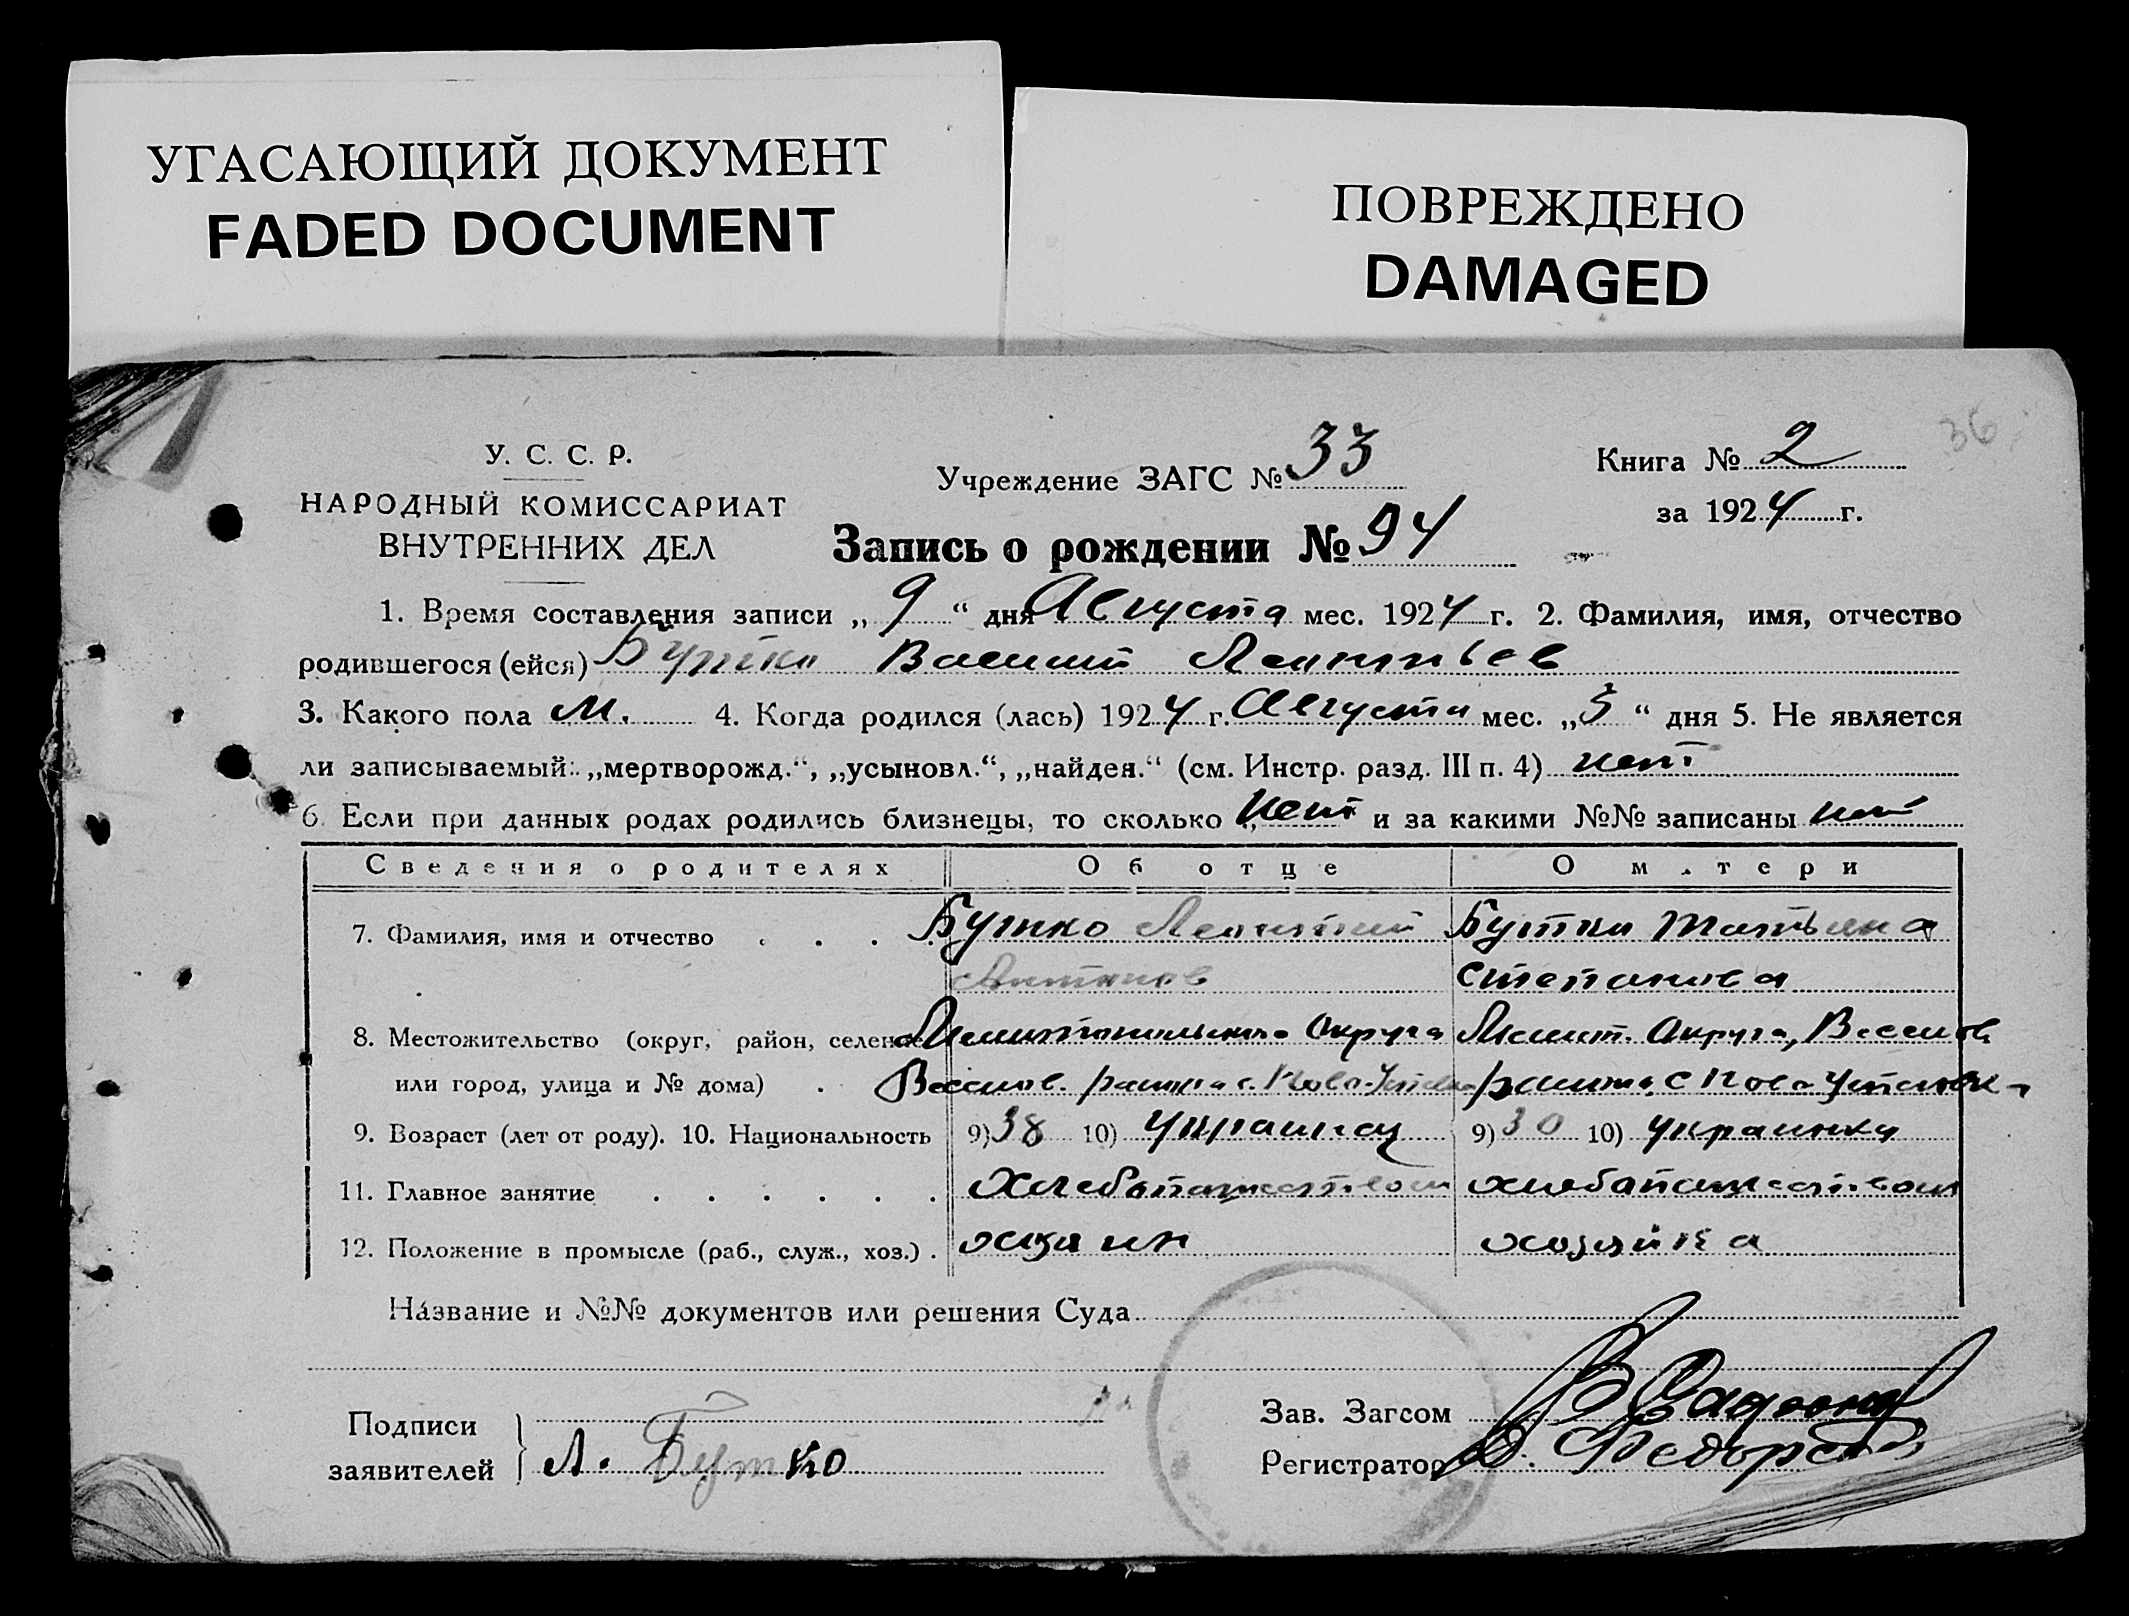 УГАСАЮЩИЙ ДОКУМЕНТ
FADED DOCUMENT
ПОВРЕЖДЕНО
DAMAGED
36
У. С. С. Р.
НАРОДНЫЙ КОМИССАРИАТ
ВНУТРЕННИХ ДЕЛ
Учреждение ЗАГС № 33
Книга № 2
за 1924 г.
Запись о рождении № 94
1. Время составления записи „ 9 “ дня Августа мес. 1924 г. 2. Фамилия, имя, отчество
родившегося (ейся) Бутко Василий Леонтьев
3. Какого пола м. 4. Когда родился (лась) 1924 г. Августа мес. „ 5 “ дня 5. Не является
ли записываемый: „мертворожд.“, „усыновл.“, „найден.“ (см. Инстр. разд. III п. 4) нет
6. Если при данных родах родились близнецы, то сколько нет и за какими №№ записаны нет
Сведения о родителях Об отце О м.тери
7. Фамилия, имя и отчество . . . Бутко Леонтий Бутко Татьяна
Антонов Степановa
8. Местожительство (округ, район, селение Мелитопольского Округа Мелит. Округа, Весели
или город, улица и № дома) . Веселов. района с. Ново-Успен района с Ново Успеновк
9. Возраст (лет от роду). 10. Национальность 9) 38 10) Украинец 9) 30 10) Украинка
11. Главное занятие . . . . . . Хлебопашеством хлебопашеством
12. Положение в промысле (раб., служ., хоз.) . хозяин хозяйка
Название и №№ документов или решения Суда
Подписи
заявителей } Л. Бутко
Зав. Загсом
Регистратор